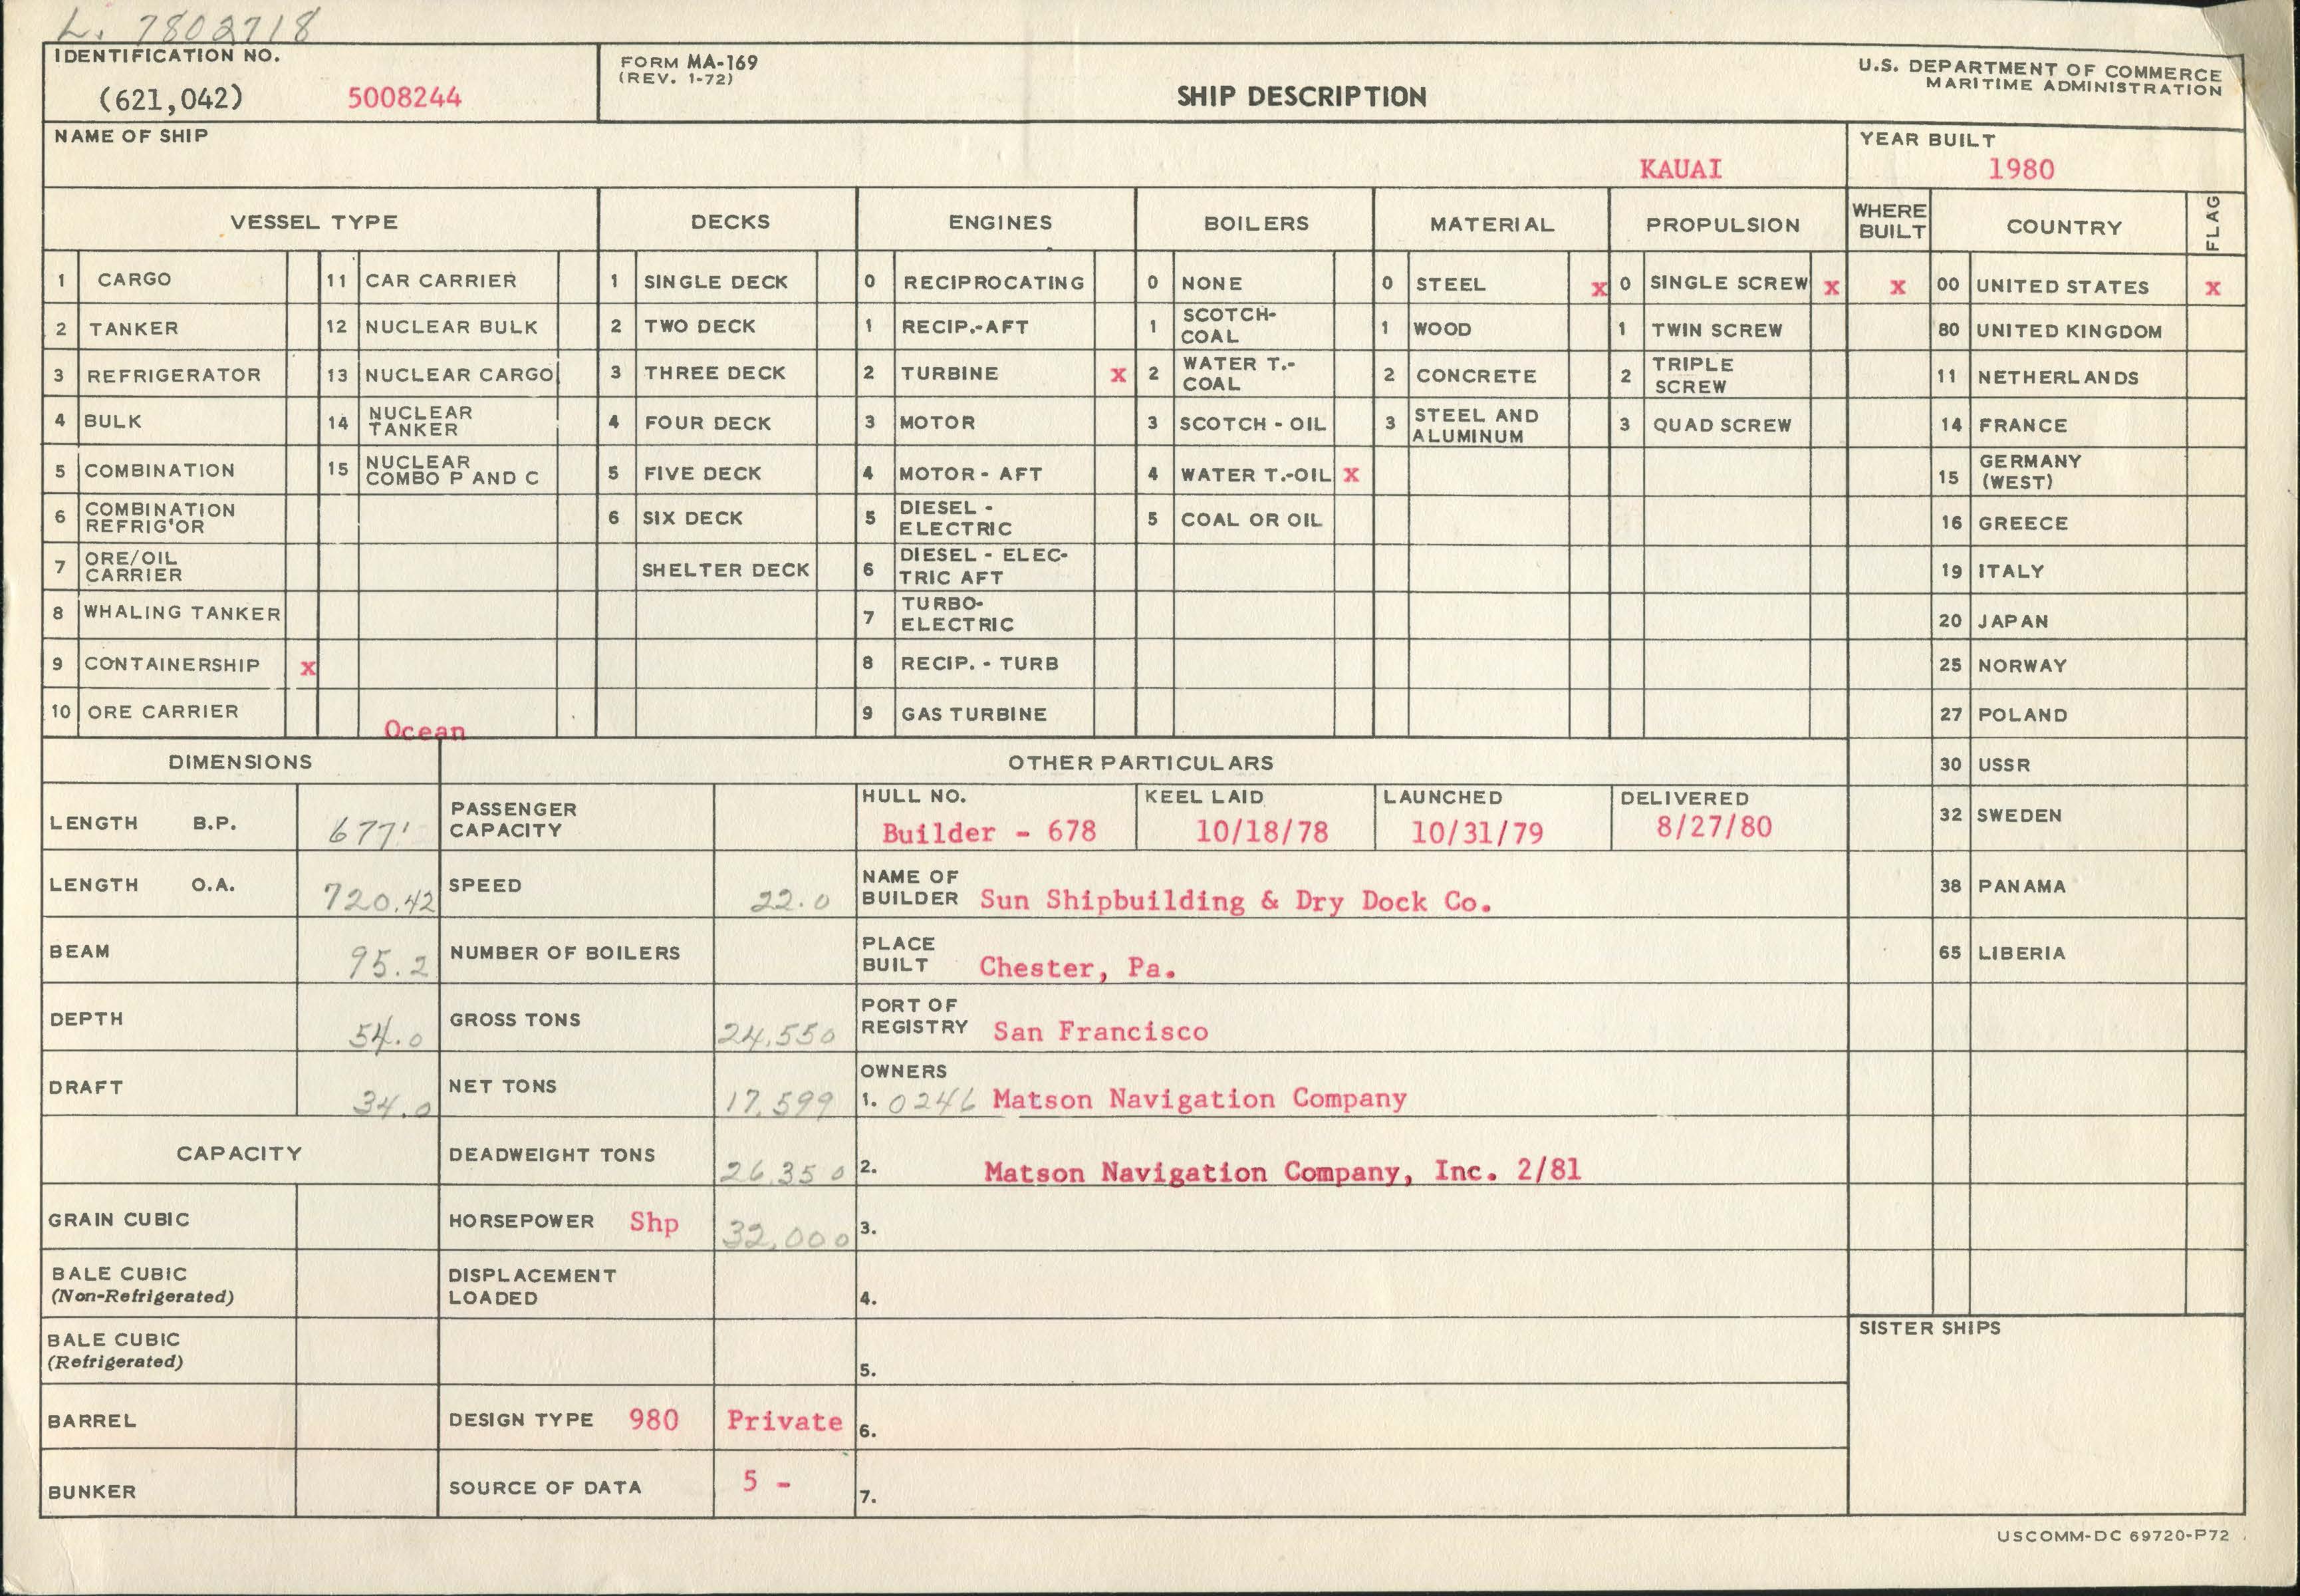 L. 7802718
IDENTIFICATION NO.
(621,042) 5008244
FORM MA-169
(REV. 1-72)
SHIP DESCRIPTION
U.S. DEPARTMENT OF COMMERCE
MARITIME ADMINISTRATION
NAME OF SHIP
KAUAI
YEAR BUILT
1980
VESSEL TYPE DECKS ENGINES BOILERS MATERIAL PROPULSION WHERE BUILT COUNTRY FLAG
1 CARGO 11 CAR CARRIER 1 SINGLE DECK 0 RECIPROCATING 0 NONE 0 STEEL x 0 SINGLE SCREW x x 00 UNITED STATES x
2 TANKER 12 NUCLEAR BULK 2 TWO DECK 1 RECIP.-AFT 1 SCOTCH-COAL 1 WOOD 1 TWIN SCREW 80 UNITED KINGDOM
3 REFRIGERATOR 13 NUCLEAR CARGO 3 THREE DECK 2 TURBINE x 2 WATER T.-COAL 2 CONCRETE 2 TRIPLE SCREW 11 NETHERLANDS
4 BULK 14 NUCLEAR TANKER 4 FOUR DECK 3 MOTOR 3 SCOTCH - OIL 3 STEEL AND ALUMINUM 3 QUAD SCREW 14 FRANCE
5 COMBINATION 15 NUCLEAR COMBO P AND C 5 FIVE DECK 4 MOTOR - AFT 4 WATER T.-OIL x 15 GERMANY (WEST)
6 COMBINATION REFRIG'OR 6 SIX DECK 5 DIESEL - ELECTRIC 5 COAL OR OIL 16 GREECE
7 ORE/OIL CARRIER SHELTER DECK 6 DIESEL - ELECTRIC AFT 19 ITALY
8 WHALING TANKER 7 TURBO-ELECTRIC 20 JAPAN
9 CONTAINERSHIP x 8 RECIP. - TURB 25 NORWAY
10 ORE CARRIER Ocean 9 GAS TURBINE 27 POLAND
DIMENSIONS OTHER PARTICULARS 30 USSR
LENGTH B.P. 677' PASSENGER CAPACITY HULL NO. Builder - 678 KEEL LAID 10/18/78 LAUNCHED 10/31/79 DELIVERED 8/27/80 32 SWEDEN
LENGTH O.A. 720.42 SPEED 22.0 NAME OF BUILDER Sun Shipbuilding & Dry Dock Co. 38 PANAMA
BEAM 95.2 NUMBER OF BOILERS PLACE BUILT Chester, Pa. 65 LIBERIA
DEPTH 54.0 GROSS TONS 24,550 PORT OF REGISTRY San Francisco
DRAFT 34.0 NET TONS 17,599 OWNERS 1. 0246 Matson Navigation Company
CAPACITY DEADWEIGHT TONS 26,350 2. Matson Navigation Company, Inc. 2/81
GRAIN CUBIC HORSEPOWER Shp 32,000 3.
BALE CUBIC (Non-Refrigerated) DISPLACEMENT LOADED 4.
BALE CUBIC (Refrigerated) 5.
SISTER SHIPS
BARREL DESIGN TYPE 980 Private 6.
BUNKER SOURCE OF DATA 5 - 7.
USCOMM-DC 69720-P72